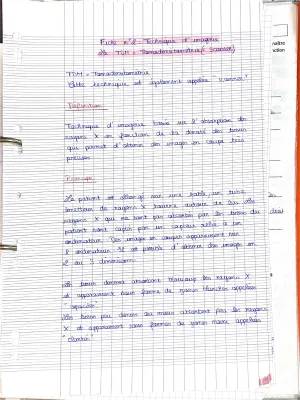 Fiche n°2 - Technique d'imagerie
La TDM = Tomodensitométrie (Scanner)
TDM = Tomodensitométrie
Cette technique est également appelée "scanner"
Définition
Technique d'imagerie basée sur l'absorption des
rayons X en fonction de la densité des tissus
qui permet d'obtenir des images en coupe très
précises
Principe
Le patient est allongé sur une table, un tube
émetteur de rayons X tourne autour de lui. Les
rayons X qui ne sont pas absorbés par les tissus du
patient sont captés par un capteur relié à un
ordinateur. Des images en coupe apparaissent sur
l'ordinateur. Il est possible d'obtenir des images en
2 ou 3 dimensions.
Les tissus denses absorbent beaucoup les rayons X
et apparaissent sous forme de zones blanches appelées
Les tissus peu denses ou mous absorbent peu les rayons
X et apparaissent sous formes de zones noires appelées